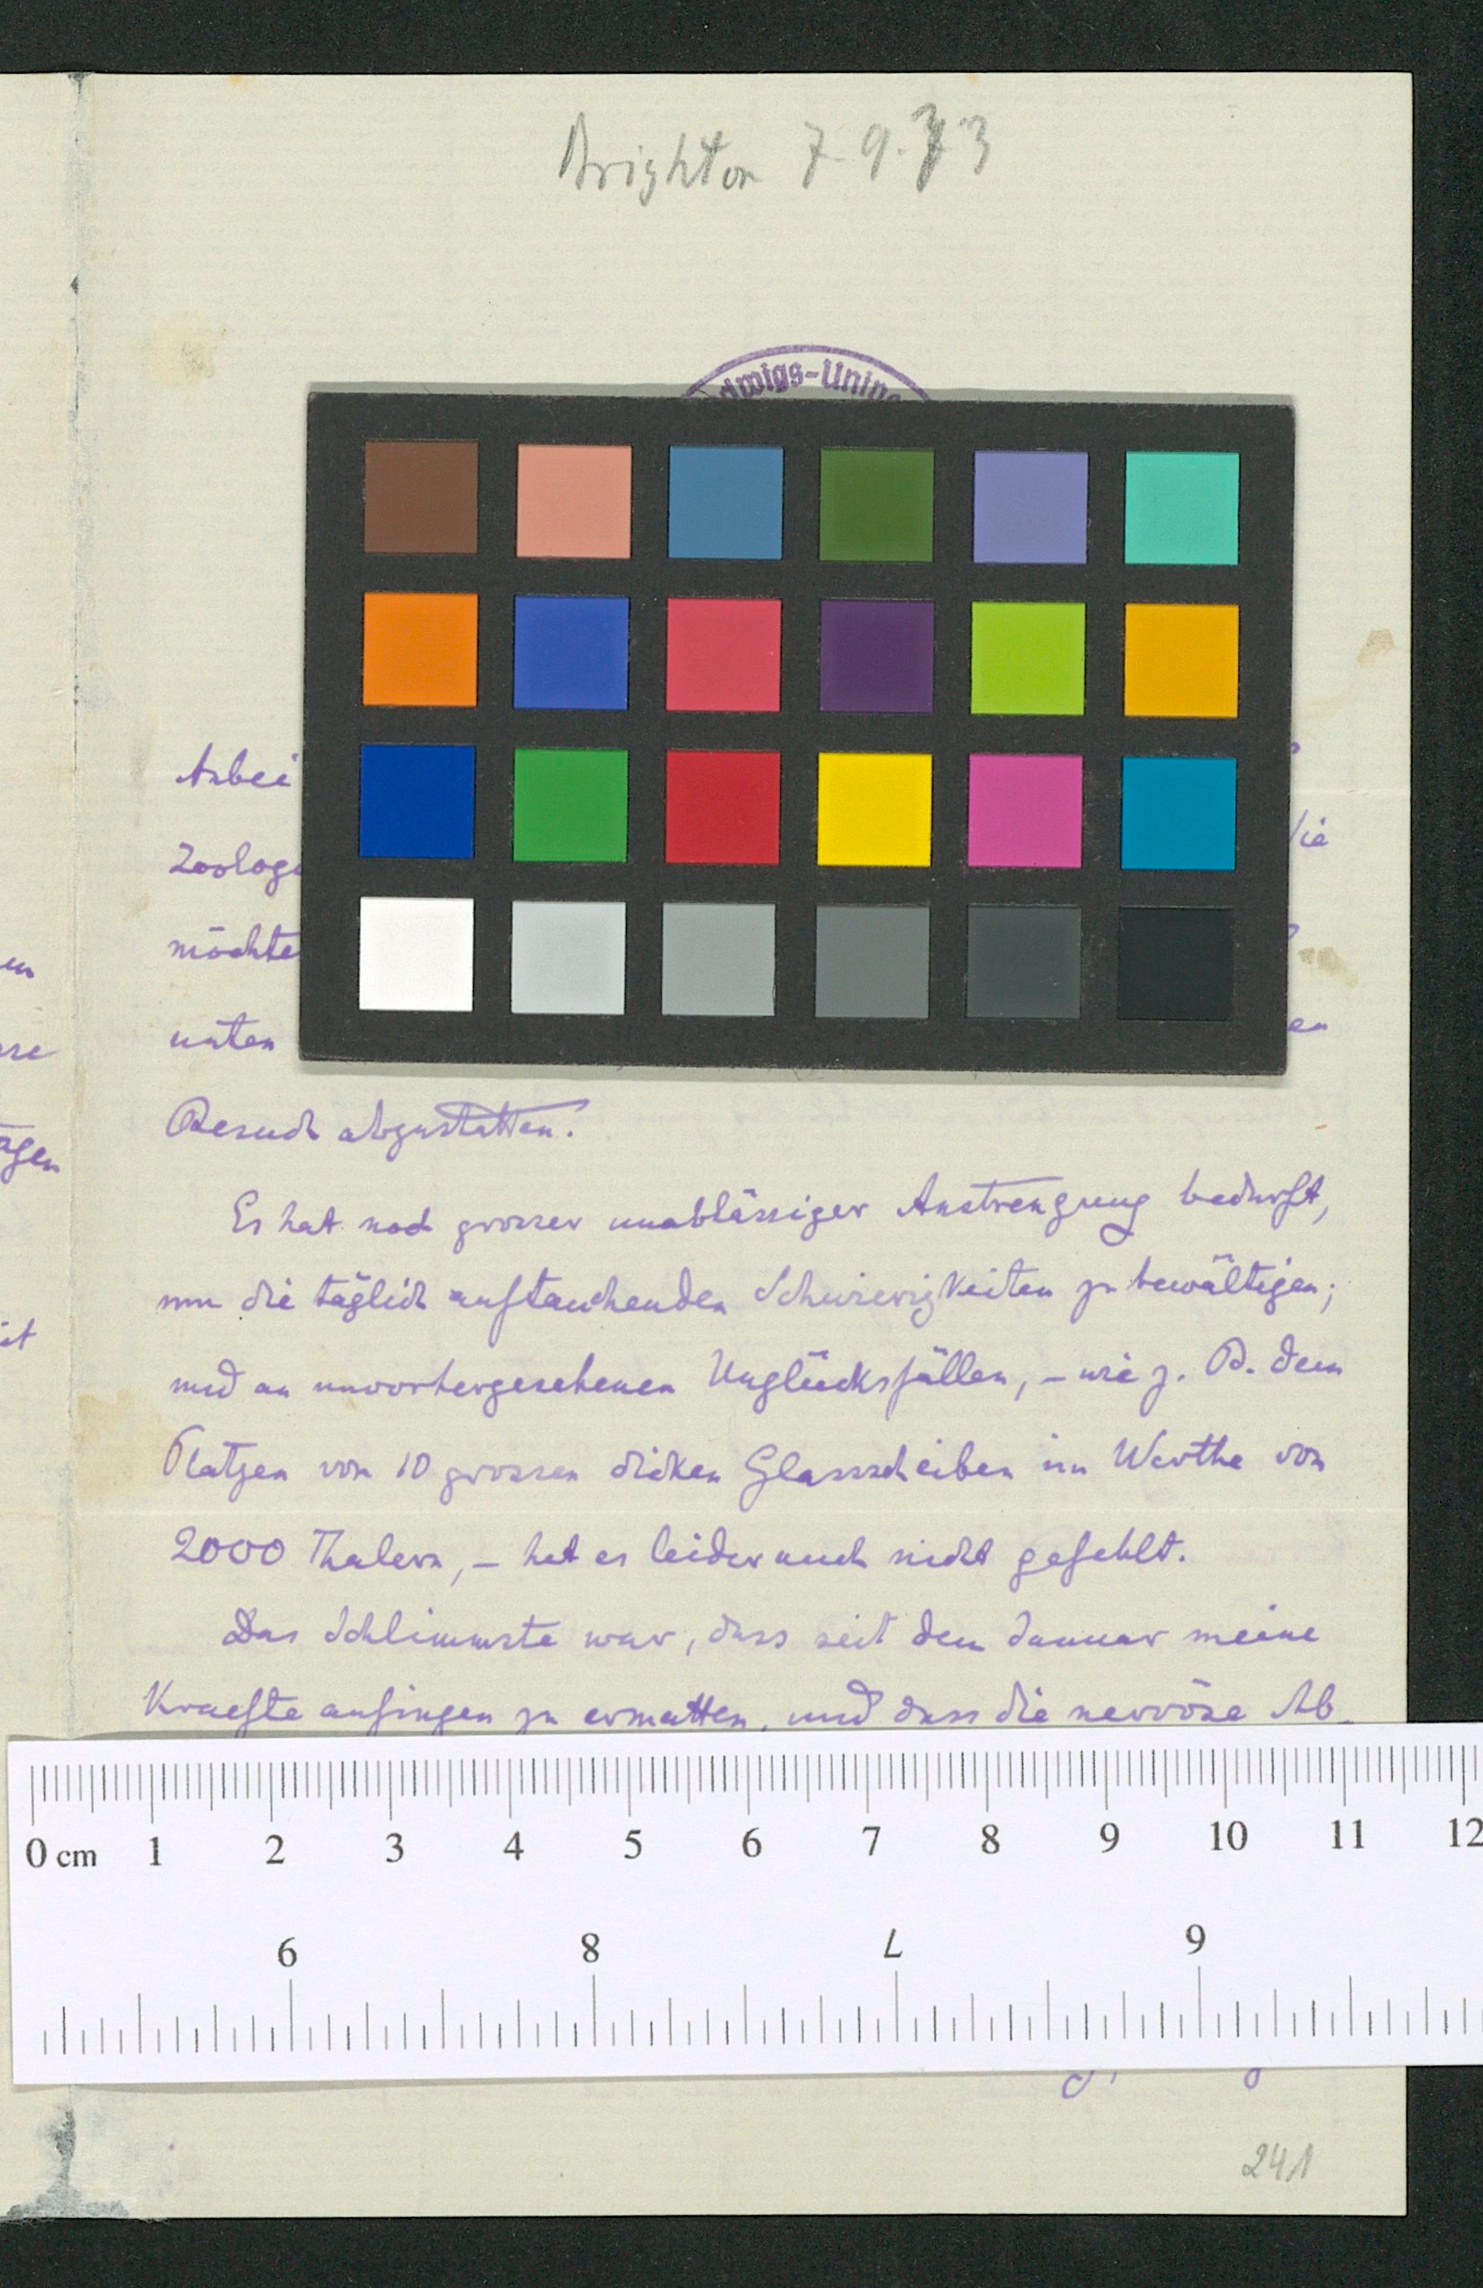 Brighton 7.9.73
dwigs-Unive
Arbei
Zoologi
die
möchte
unten
en
en
Besuch abzustatten.
Es hat noch grosser unablässiger Anstrengung bedurft,
um die täglich auftauchenden Schwierigkeiten zu bewältigen;
und an unvorhergesehenen Unglücksfällen, – wie z. B. dem
Platzen von 10 grossen dicken Glassscheiben im Werthe von
2000 Thalern, – hat es leider auch nicht gefehlt.
Das Schlimmste war, dass seit dem Januar meine
Kraefte anfingen zu ermatten, und dass die nervöse Ab-
0 cm 1 2 3 4 5 6 7 8 9 10 11 12
9 8 7 6
241